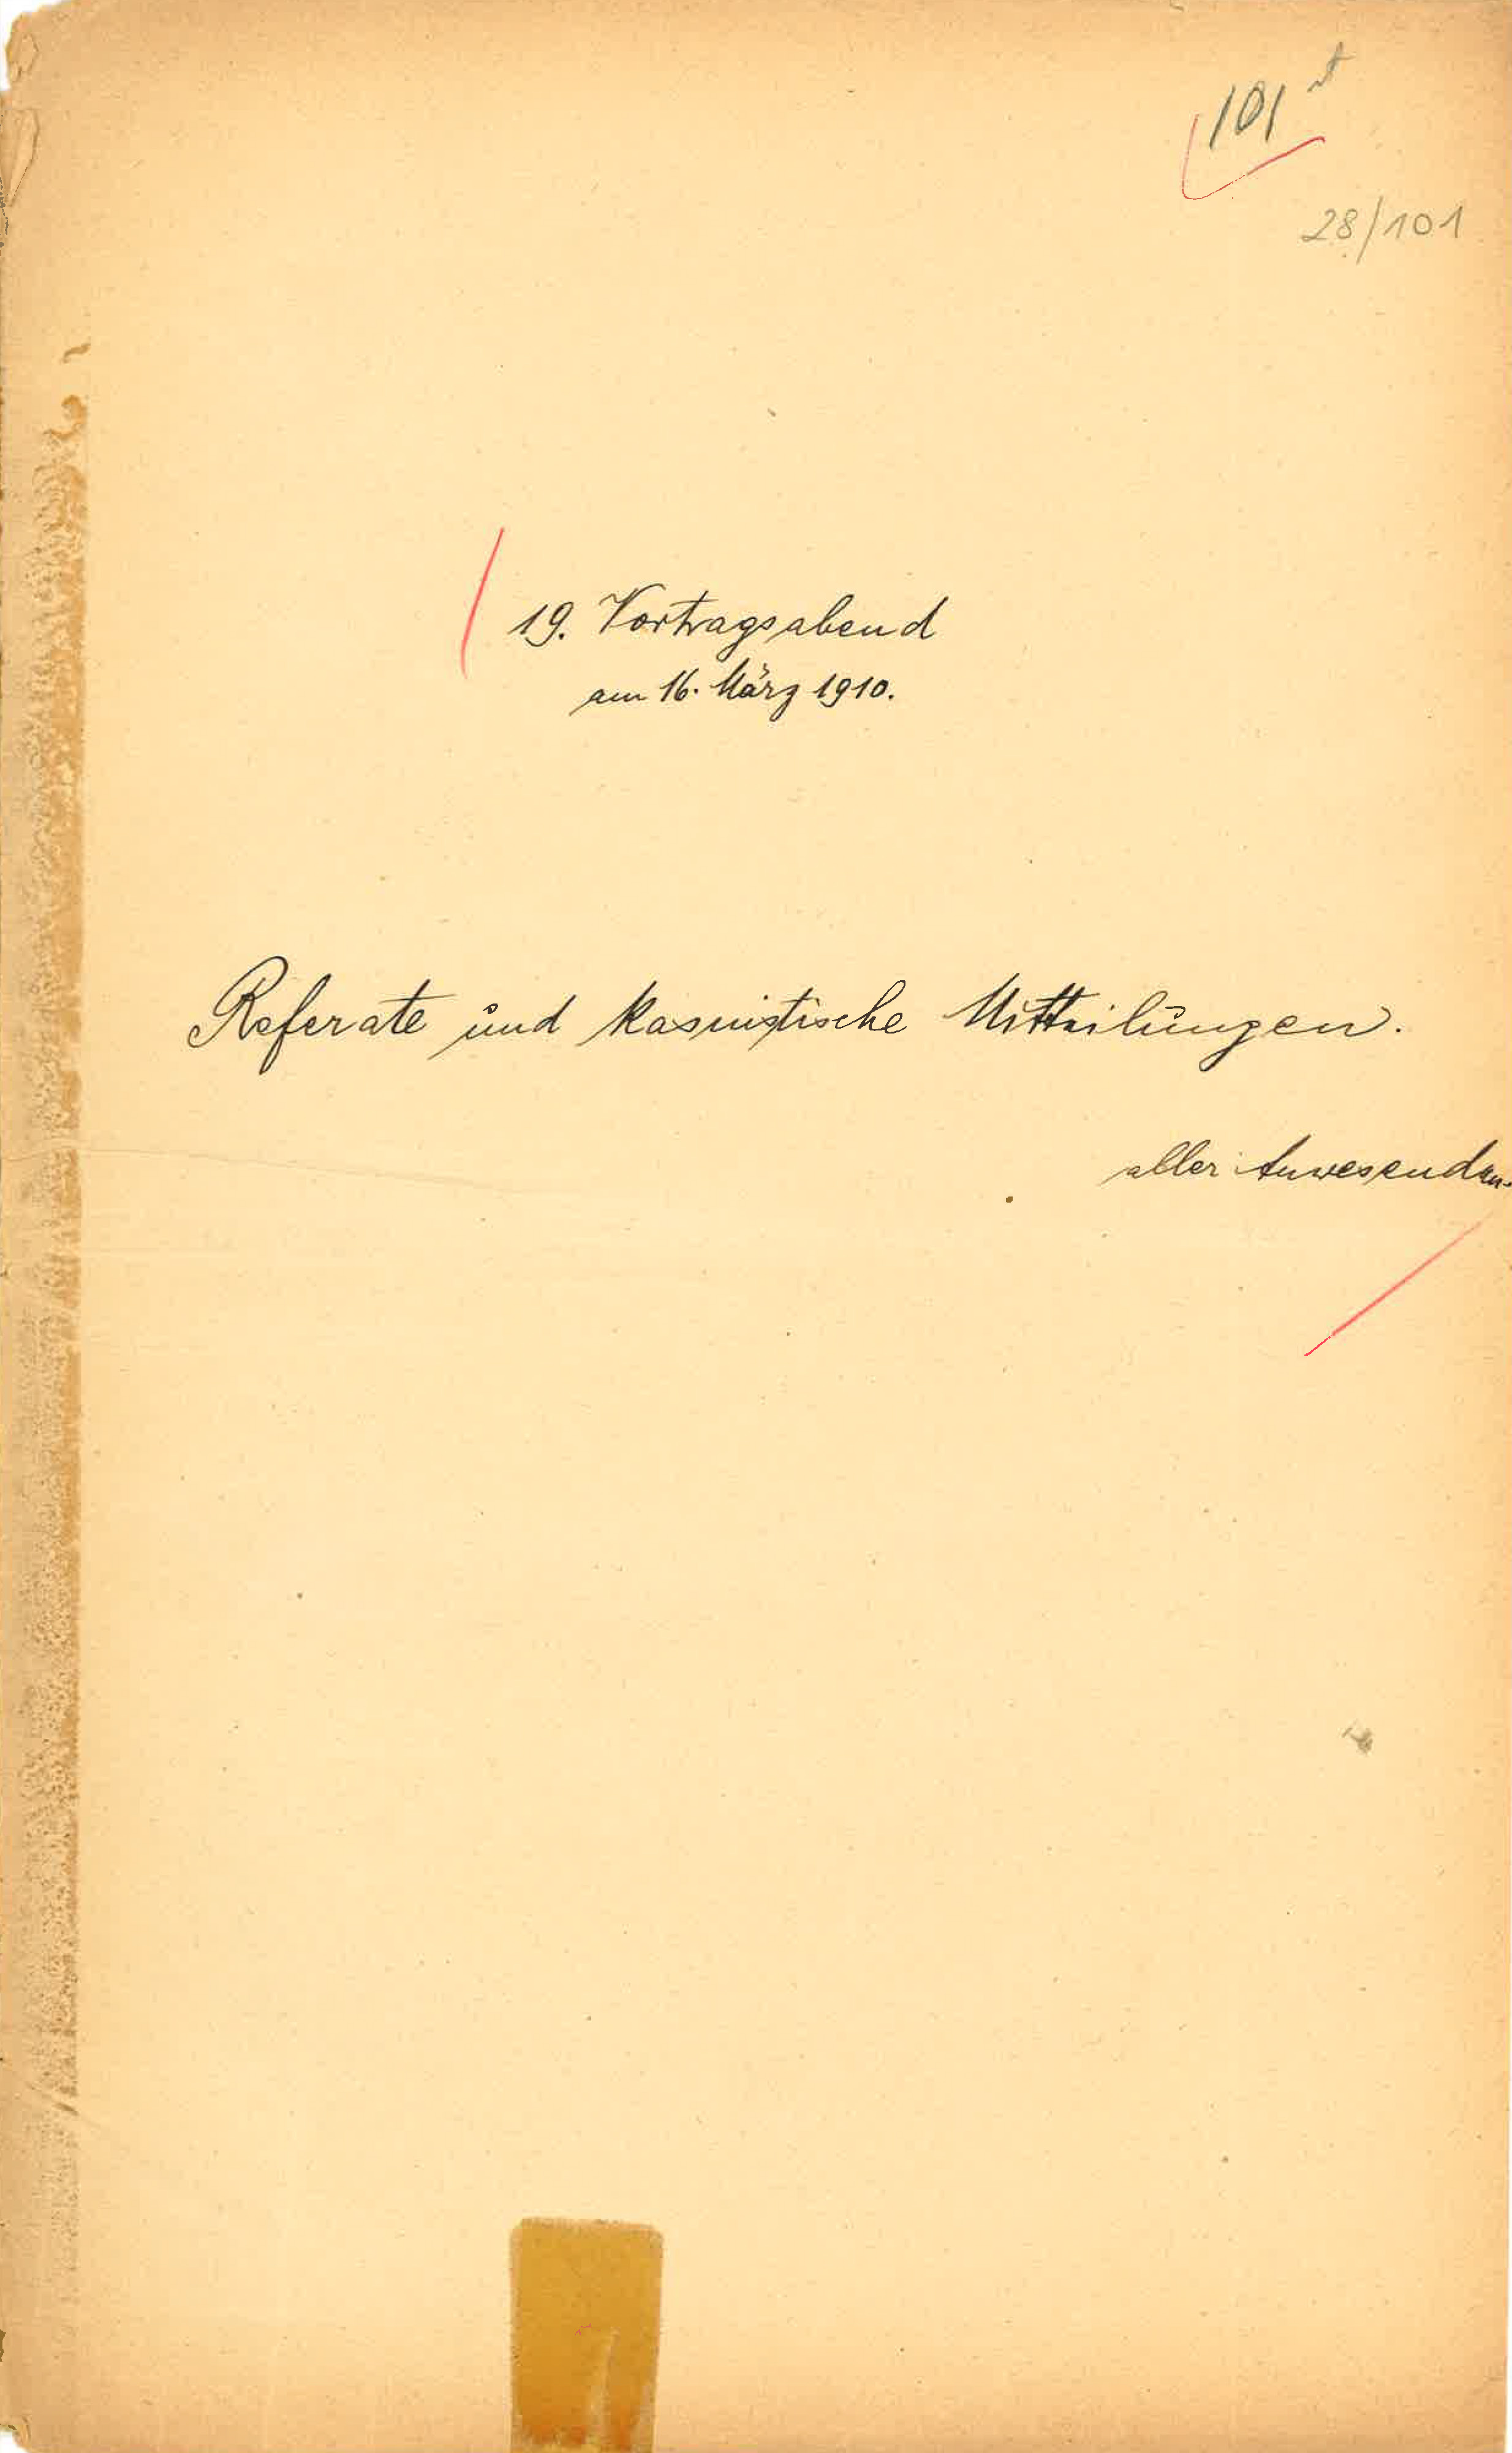 101
28/101
19. Vortragsabend
am 16. März 1910.
Referate und kasuistische Mitteilungen.
aller Anwesenden.